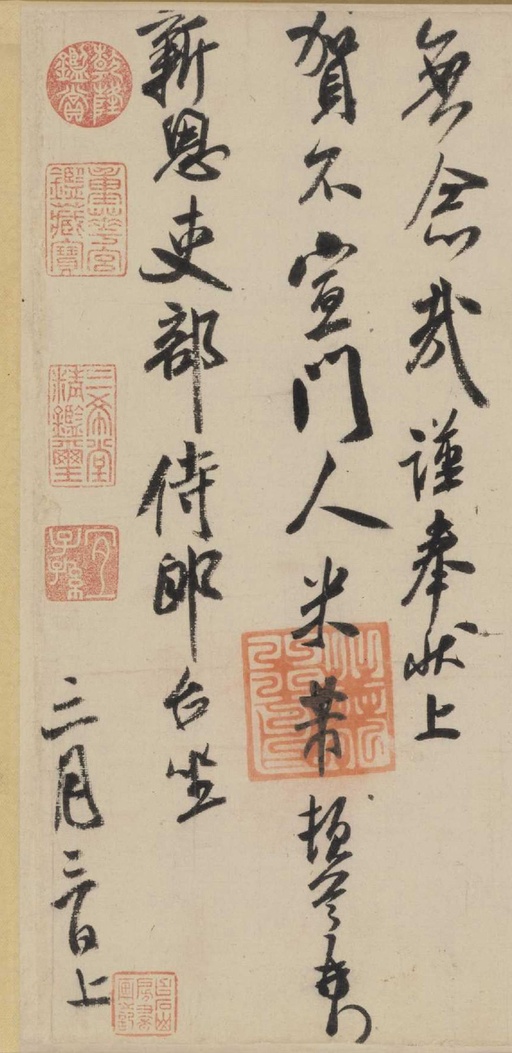 無念哉謹奉狀上
賀不宣門人米芾頓首再拜
新恩吏部侍郎台坐
三月三日上
乾隆鑑賞
重華宮鑑藏寶
三希堂精鑑璽
宜子孫